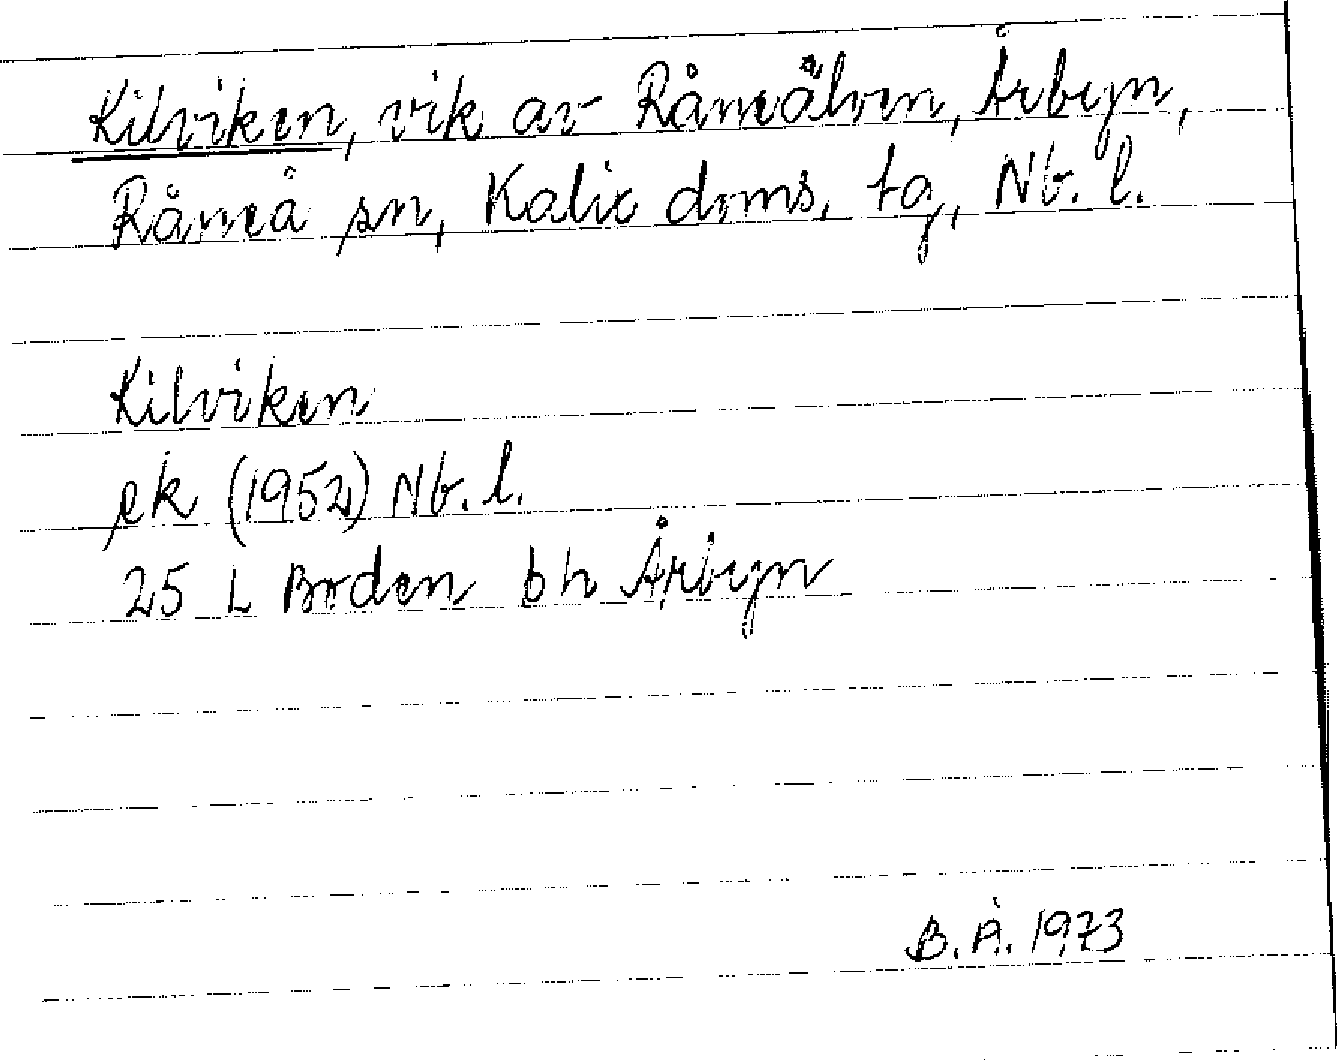 Kilviken, vik av Råneälven, Årbyn,
Råneå sn, Kalix doms. tg, Nb. l.
Kilviken
ek (1952) Nb. l.
25 L Boden bh Årbyn
B.Å. 1973